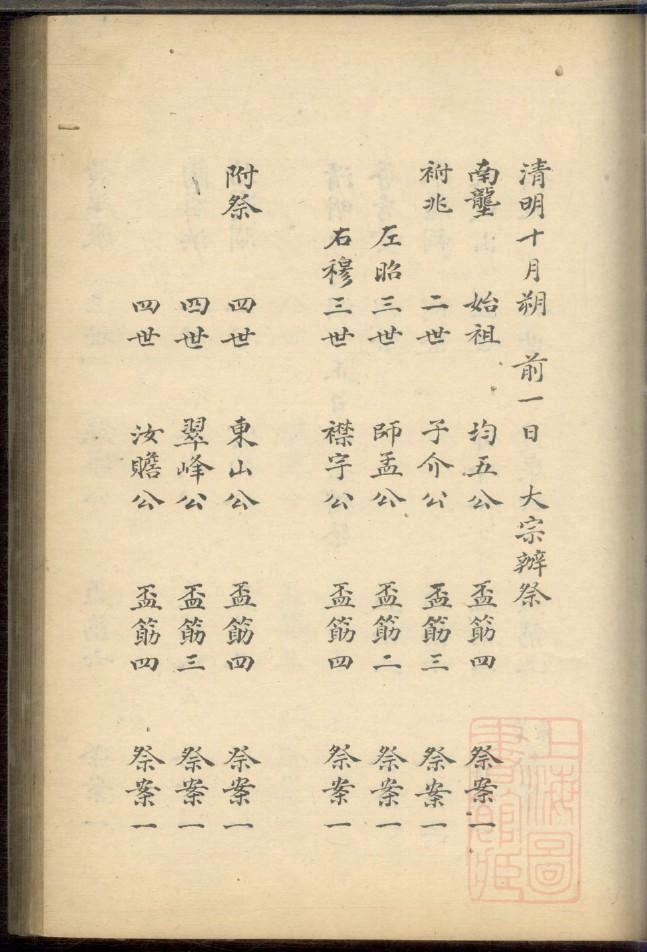 清明十月朔　前一日　大宗辦祭
南壟　始祖　均五公　盃筯四　祭案一
祔兆　二世　子介公　盃筯三　祭案一
左昭三世　師孟公　盃筯二　祭案一
右穆三世　襟宇公　盃筯四　祭案一
附祭　四世　東山公　盃筯四　祭案一
四世　翠峰公　盃筯三　祭案一
四世　汝贍公　盃筯四　祭案一
上海圖書館藏